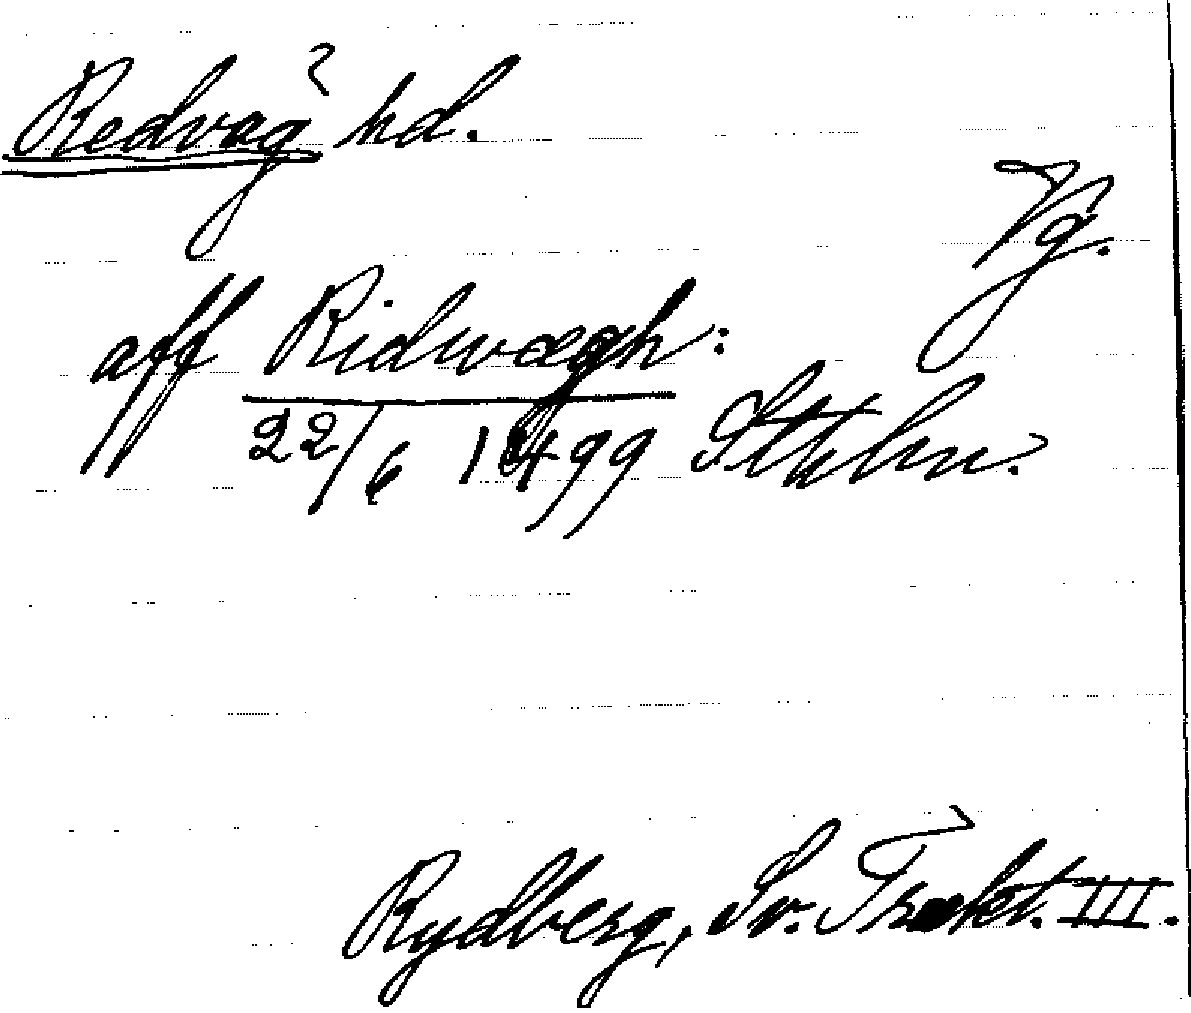 Redväg hd.
Vg.
aff Ridwægh:
22/6 1499 Sthlm.
Rydberg, Sv. Trakt. III.